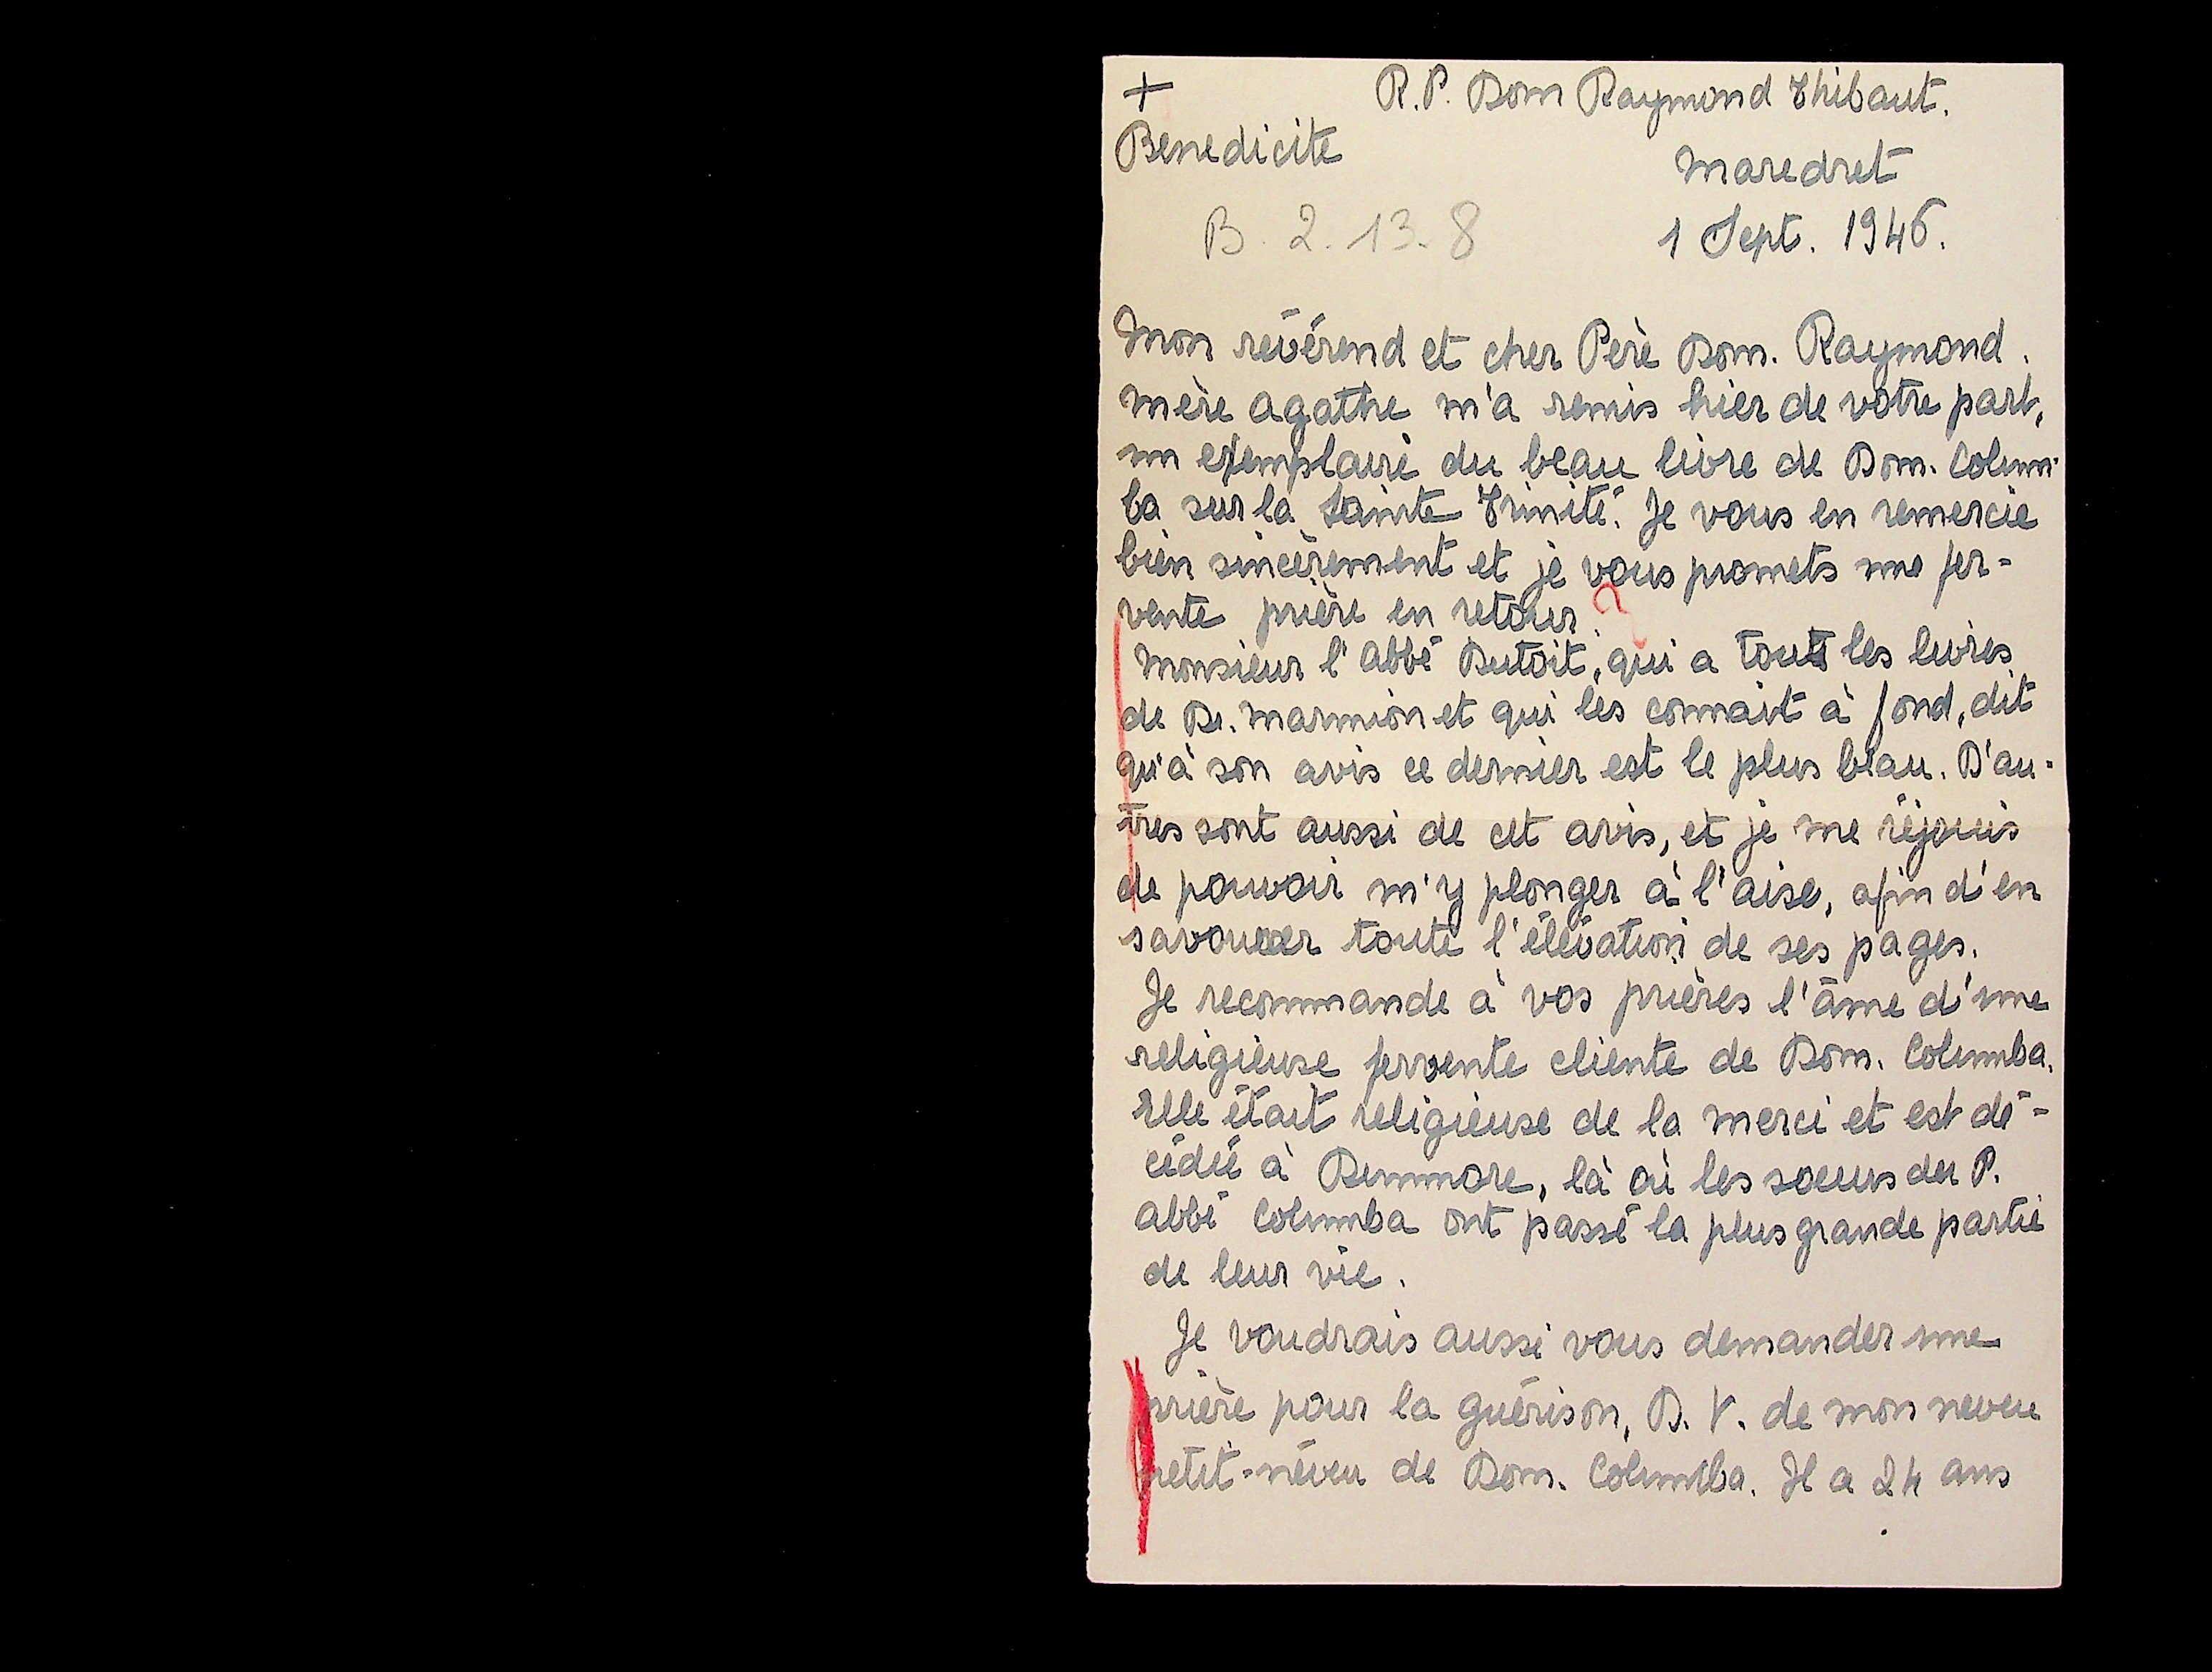 +
R.P. Dom Raymond Thibaut.
Benedicite
Maredret
B. 2. 13. 8
1 Sept. 1946.
Mon révérend et cher Père Dom. Raymond.
Mère Agathe m'a remis hier de votre part,
un exemplaire du beau livre de Dom. Colum-
ba sur la Sainte Trinité. Je vous en remercie
bien sincèrement et je vous promets une fer-
vente prière en retour.
?
Monsieur l'Abbé Dutoit, qui a tout les livres
de D. Marmion et qui les connait à fond, dit
qu'à son avis ce dernier est le plus beau. D'au-
tres sont aussi de cet avis, et je me réjouis
de pouvoir m'y plonger à l'aise, afin d'en
savourer toute l'élévation de ses pages.
Je recommande à vos prières l'âme d'une
religieuse fervente cliente de Dom. Columba.
Elle était religieuse de la Merci et est dé-
cédée à Dunmore, là où les soeurs du P.
Abbé Columba ont passé la plus grande partie
de leur vie.
Je voudrais aussi vous demander une
prière pour la guérison, D. V. de mon neveu
petit-neveu de Dom. Columba. Il a 24 ans